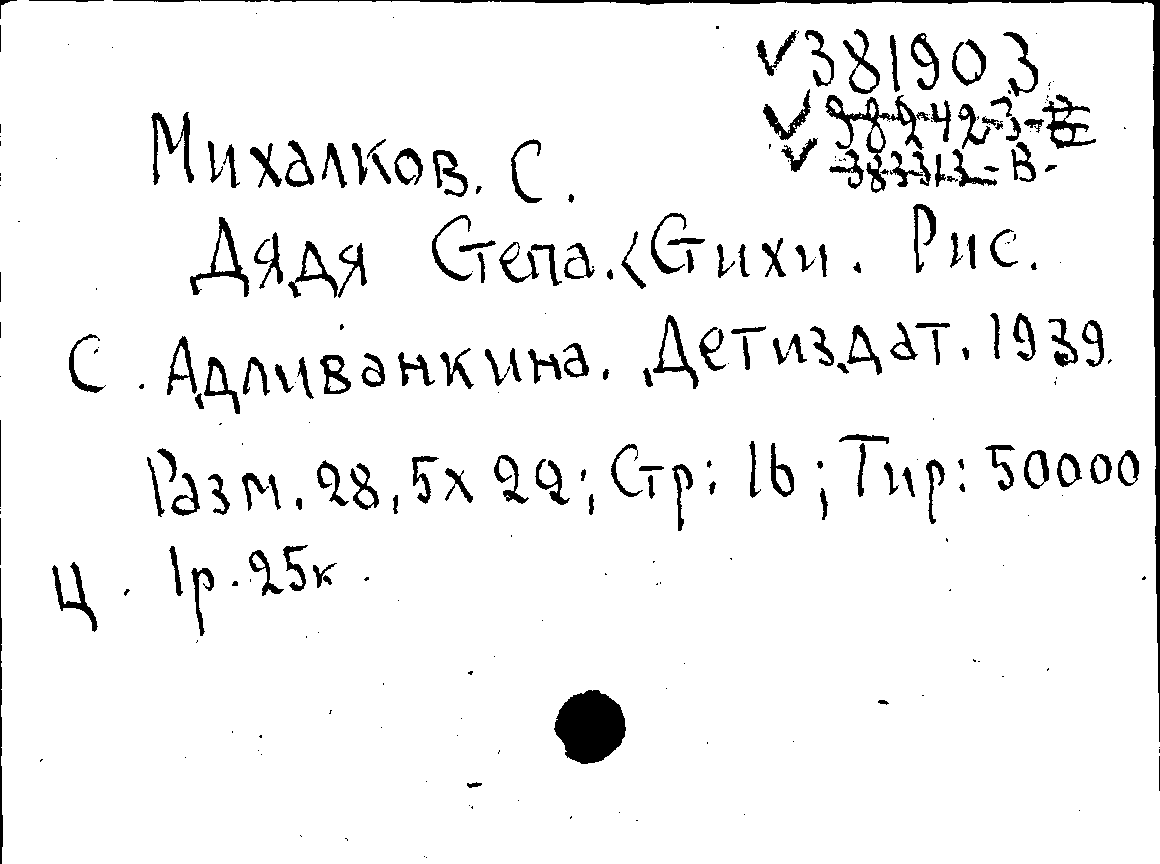 ✓381903
✓98242-3-В
✓383313-В-
Михалков. С.
Дядя Степа.<Стихи. Рис.
С. Адливанкина. Детиздат. 1939.
Разм. 28,5х22; Стр: 16; Тир: 50000
Ц. 1р.25к.